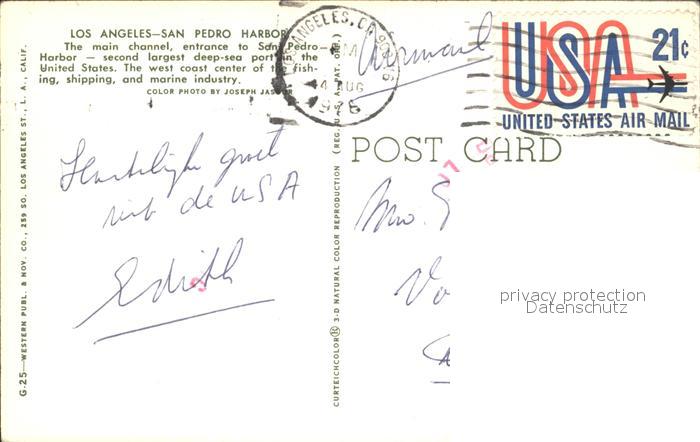 LOS ANGELES—SAN PEDRO HARBOR
The main channel, entrance to San Pedro
Harbor — second largest deep-sea port in the
United States. The west coast center of the fish-
ing, shipping, and marine industry.
COLOR PHOTO BY JOSEPH
LOS ANGELES, CA
PM
4 AUG
1976
Airmail
USA 21c
UNITED STATES AIR MAIL
POST CARD
G-25—WESTERN PUBL. & NOV. CO., 259 SO. LOS ANGELES ST., L. A., CALIF.
CURTEICHCOLOR 3-D NATURAL COLOR REPRODUCTION (REG. U.S.A. PAT. OFF.)
de USA
Edith
privacy protection
Datenschutz